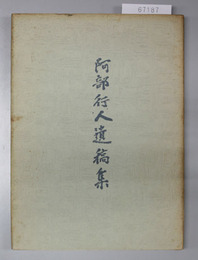 67187
阿部行人遺稿集